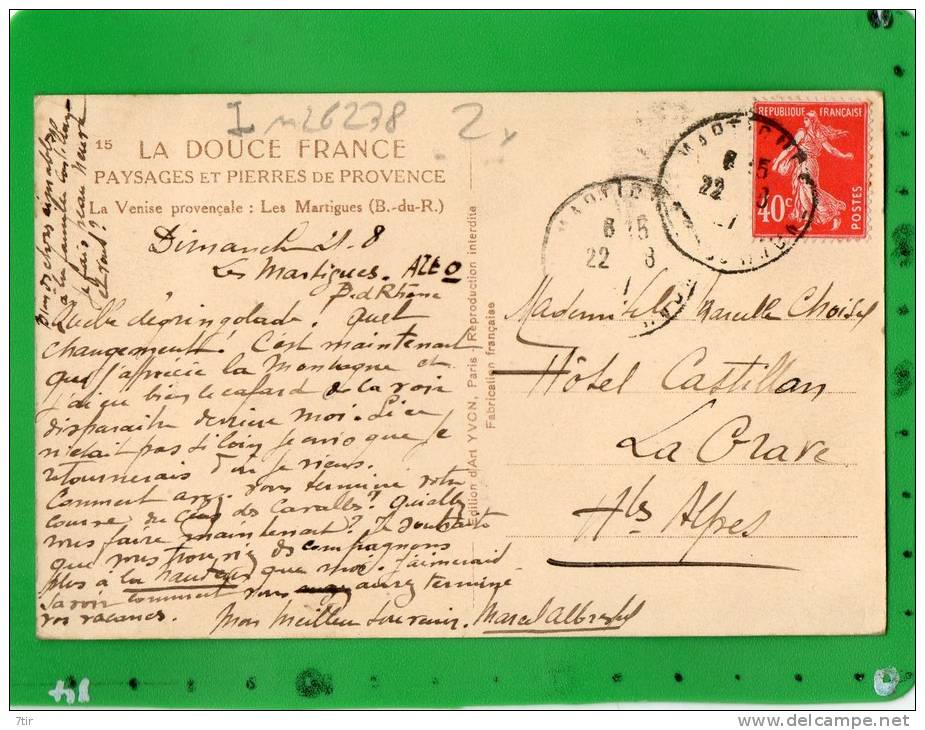 I m26278 2x
15 LA DOUCE FRANCE
PAYSAGES ET PIERRES DE PROVENCE
La Venise provençale : Les Martigues (B.-du-R.)
Dimanche 21.8
Les Martigues.
B. d Rhône
Quelle dégringolade. Quel
changement. C'est maintenant
que j'apprécie la Montagne et
j'ai eu bien le cafard de la voir
disparaître derrière moi. Si ce
n'était pas si loin je crois que je
retournerais d'où je viens.
Comment avez-vous terminé votre
course, du des Cavalles? Qu'allez
vous faire maintenant? Je souhaite
que vous trouviez des compagnons
plus à la hauteur que moi. J'aimerais
savoir comment vous aurez terminé
vos vacances. Mon meilleur souvenir. Marcel
Bien des choses aimables
à la famille
et vous?
Edition d'Art YVON, Paris - Reproduction interdite
Fabrication française
REPUBLIQUE FRANÇAISE
40c
POSTES
MARTIGUES
22 8
MARTIGUES
22 8
Mademoiselle Marcelle Choisel
Hôtel Castillan
La Grave
Htes Alpes
7tir
www.delcampe.net